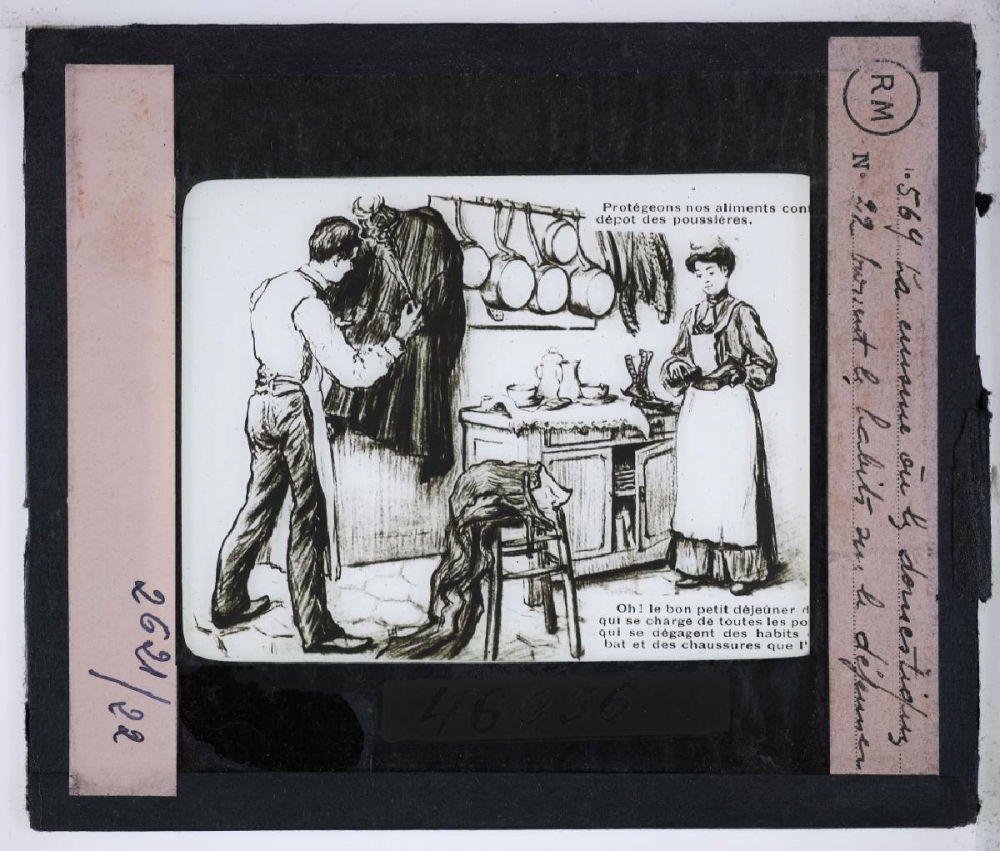 Protégeons nos aliments con
dépot des poussières.
Oh! le bon petit déjeûner d
qui se charge de toutes les po
qui se dégagent des habits
bat et des chaussures que l'
RM
N° 22 les habits sur le déjeuner
569 La cuisine où les domestiques
2621/22